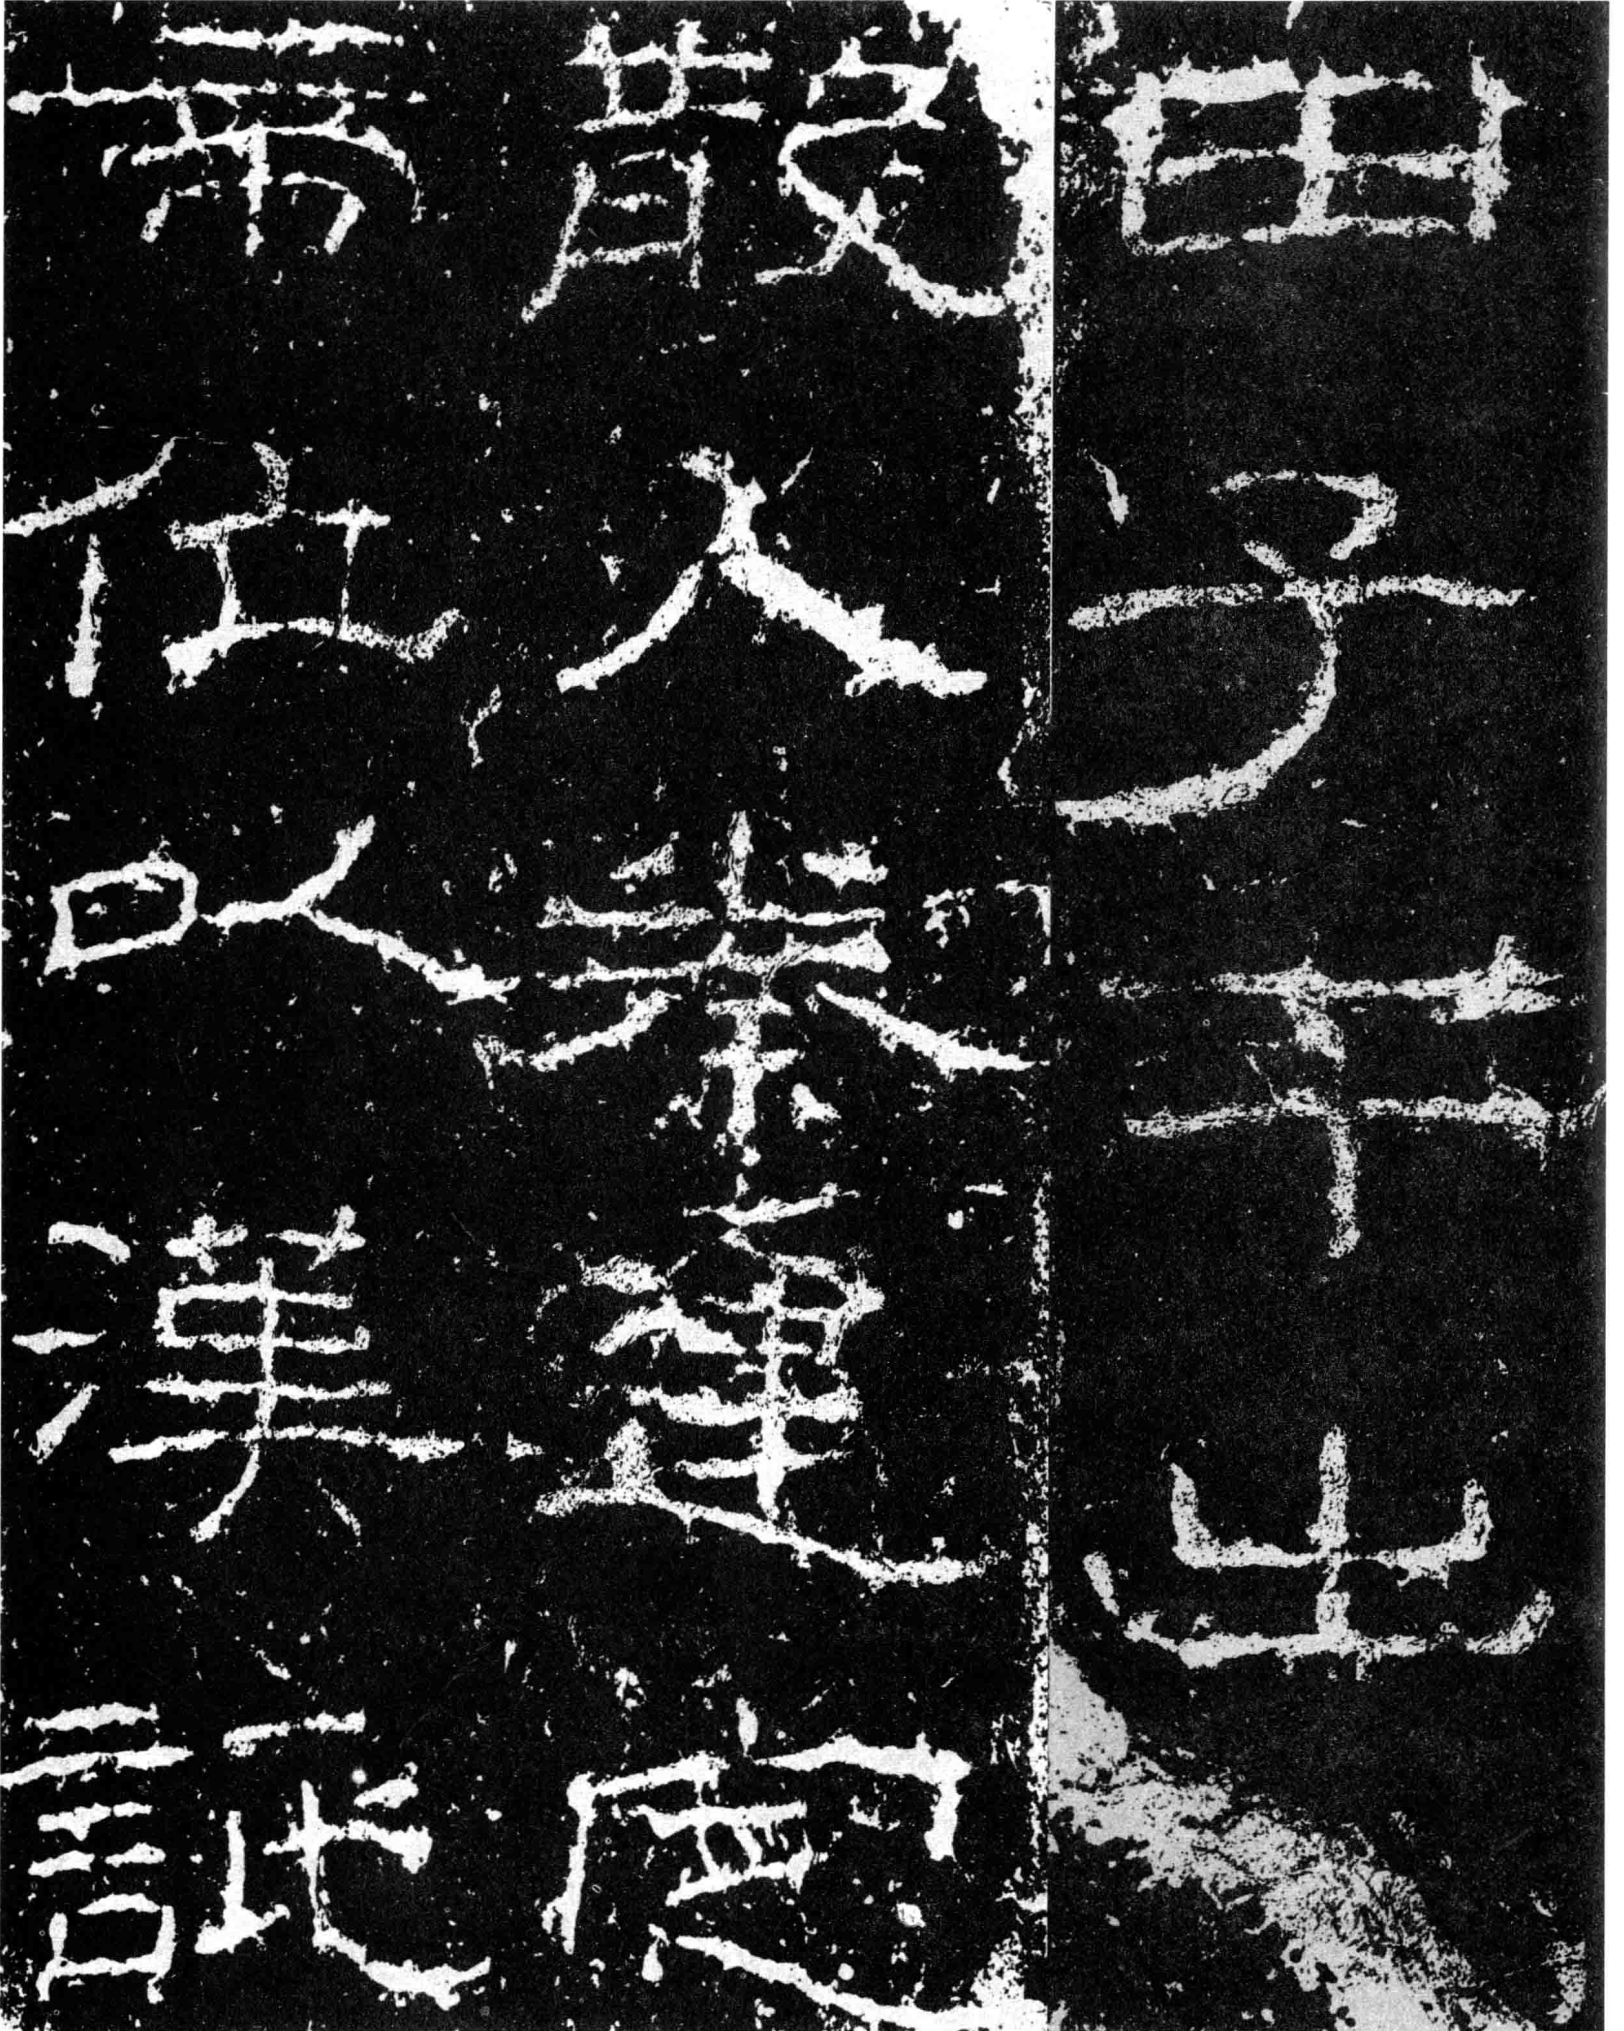 由子午出
散入秦建定
帝位以漢詆